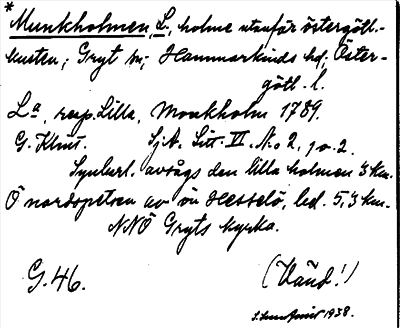 * Munkholmen, L., holme utanför östergötl.-
kusten; Gryt sn; Hammarkinds hd; Öster-
götl. l.
La, resp. Lilla, Monkholm 1789.
G. Klint. SjA. Litt. VI. No 2, 1 o. 2.
Synbarl. avsågs den lilla holmen 3 km.
Ö nordspetsen av ön Hesselö, bel. 5,3 km.
NNÖ Gryts kyrka.
G. 46. (Vänd!)
1938.